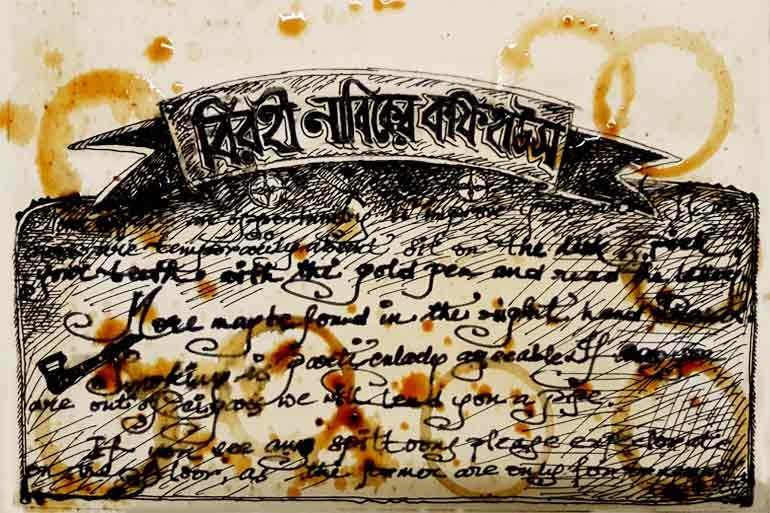 বিরহী নাবিকের কফি হাউস
opportunity to improve your
are temporarily absent sit on the desk, pick
your teeth with the gold pen and read the letters
More may be found in the right hand
Smoking is particularly agreeable. If you
are out of cigars we will lend you a pipe.
If you see any spittoons please expectorate
on the floor, as the former are only for ornament